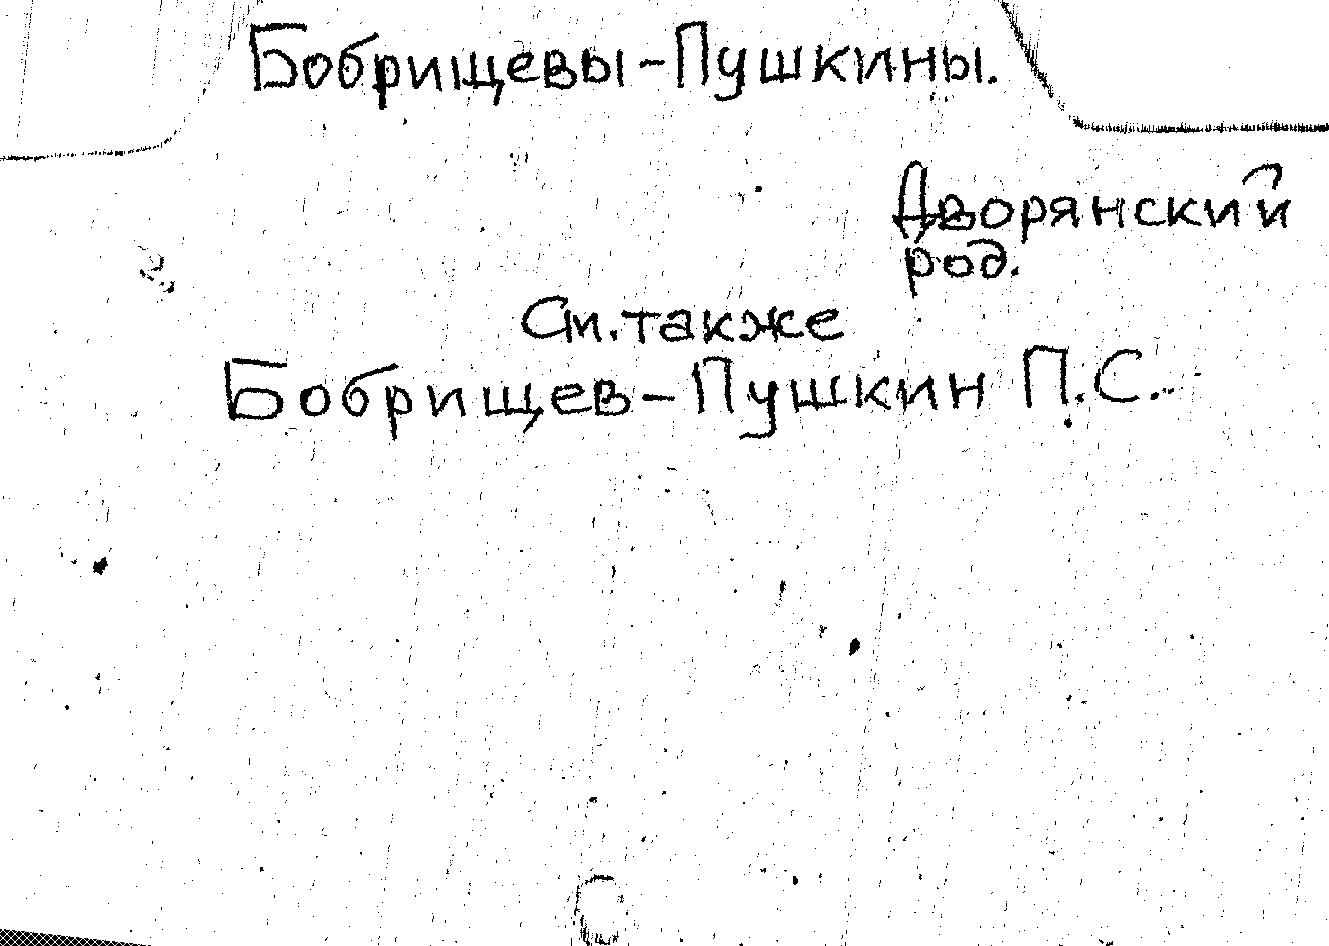 Бобрищевы-Пушкины.
Дворянский
род.
См. также
Бобрищев-Пушкин П.С.